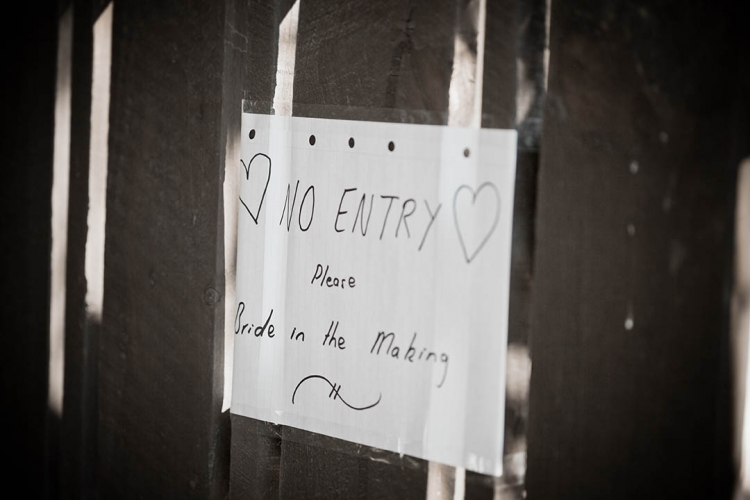 NO ENTRY
Please
Bride in the Making